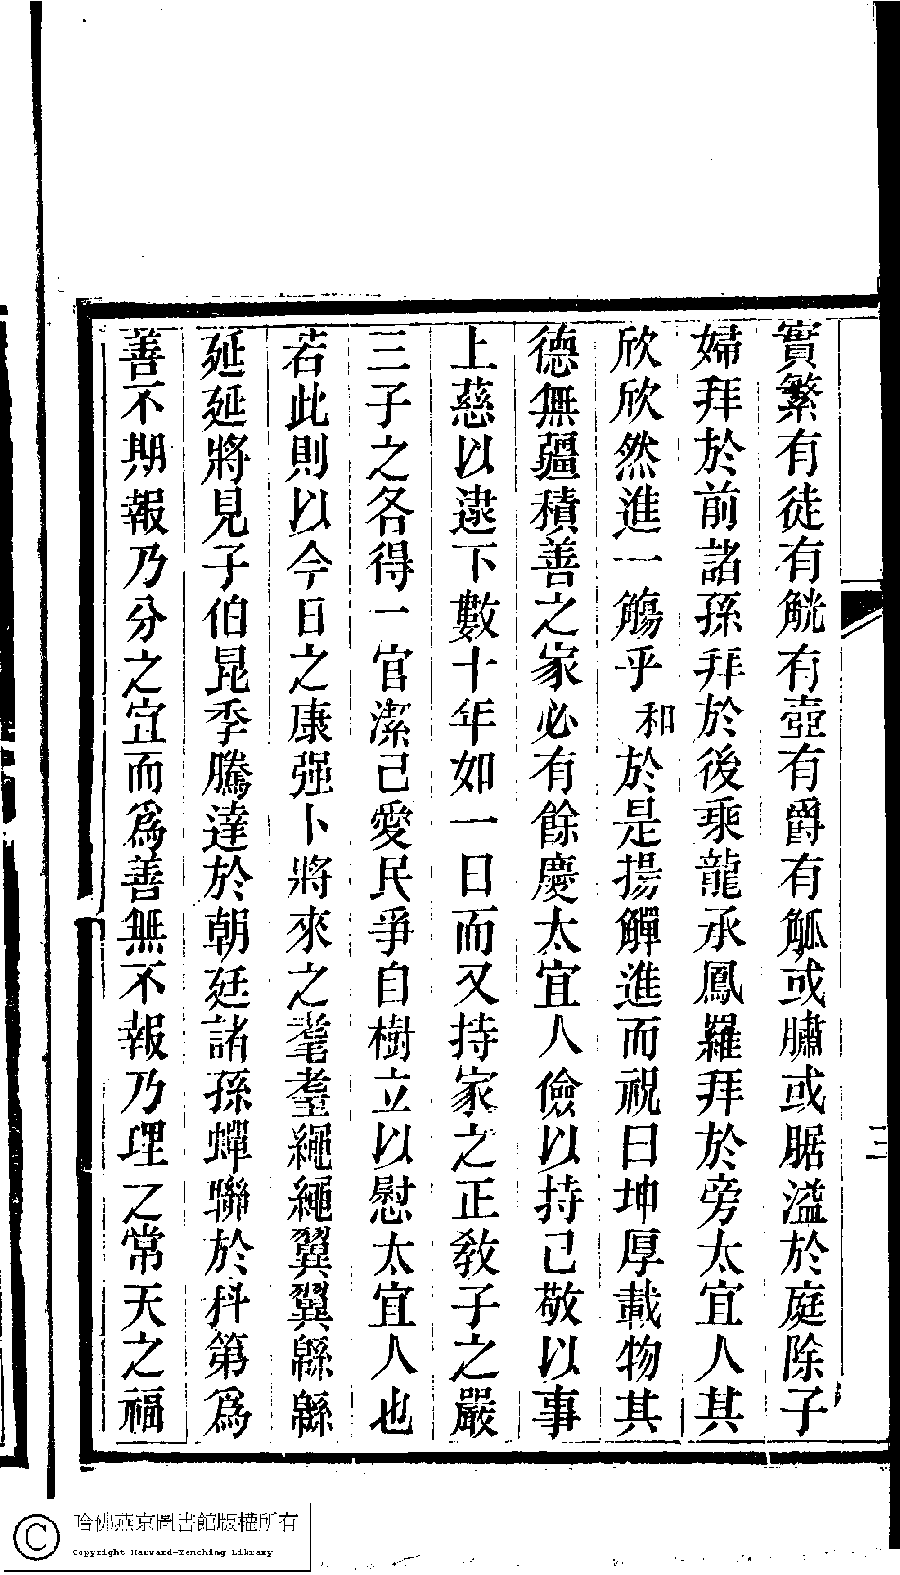 實繁有徒有觥有壺有爵有觚或膴或腒溢於庭除子
婦拜於前諸孫拜於後乘龍承鳳羅拜於旁太宜人其
欣欣然進一觴乎和於是揚觶進而祝曰坤厚載物其
德無疆積善之家必有餘慶太宜人儉以持己敬以事
上慈以逮下數十年如一日而又持家之正教子之嚴
三子之各得一官潔己愛民爭自樹立以慰太宜人也
若此則以今日之康强卜將來之耄耋繩繩翼翼緜緜
延延將見子伯昆季騰達於朝廷諸孫蟬聯於科第為
善不期報乃分之宜而為善無不報乃理之常天之福
三
哈佛燕京圖書館版權所有
Copyright Harvard-Yenching Library